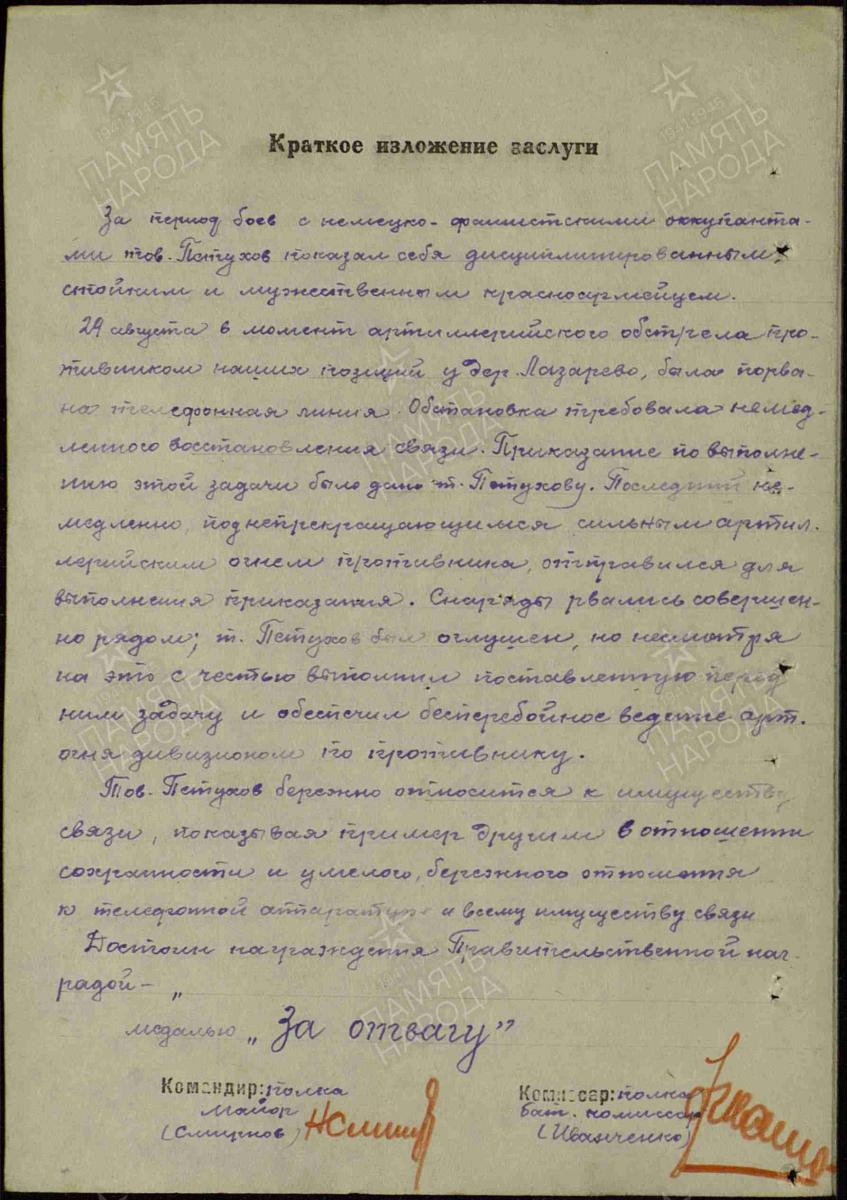 Краткое изложение заслуги
За период боев с немецко-фашистскими оккупанта-
ми тов. Петухов показал себя дисциплинированным
стойким и мужественным красноармейцем.
29 августа в момент артиллерийского обстрела про-
тивником наших позиций у дер. Лазарево, была порва-
на телефонная линия. Обстановка требовала немед-
ленного восстановления связи. Приказание по выполне-
нию этой задачи было дано т. Петухову. Последний не-
медленно, под непрекращающимся сильным артил-
лерийским огнем противника, отправился для
выполнения приказания. Снаряды рвались совершен-
но рядом; т. Петухов был оглушен, но несмотря
на это с честью выполнил поставленную перед
ним задачу и обеспечил бесперебойное ведение арт.
огня дивизионом по противнику.
Тов. Петухов бережно относится к имуществу
связи, показывая пример другим в отношении
сохранности и умелого, бережного отношения
к телефонной аппаратуре и всему имуществу связи
Достоин награждения Правительственной наг-
радой - "
медалью „За отвагу"
Командир: полка
Майор
(Смирнов)
Комиссар: полка
Бат. комиссар
(Иванченко)
1941-1945
ПАМЯТЬ
НАРОДА